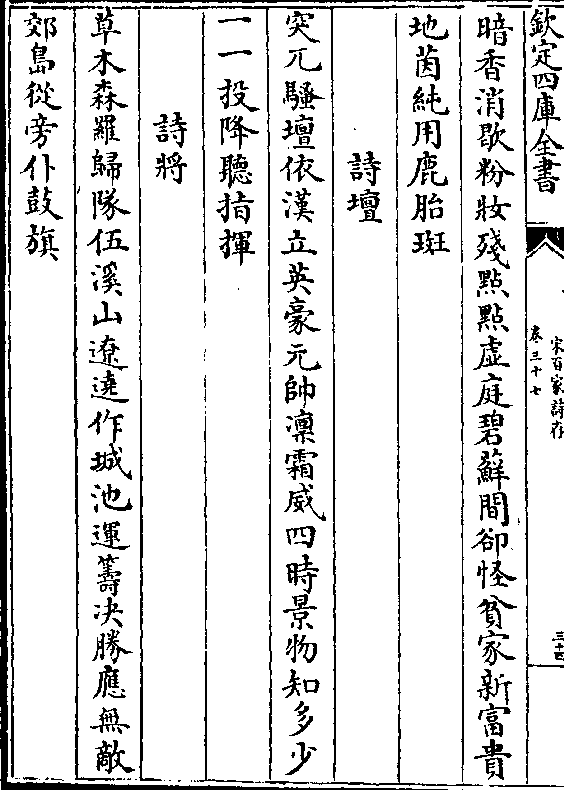 欽定四庫全書
宋百家詩存
卷三十七
三十四
暗香消歇粉妝殘點點虛庭碧蘚間卻怪貧家新富貴
地茵純用鹿胎斑
詩壇
突兀騷壇依漢立英豪元帥凛霜威四時景物知多少
一一投降聽指揮
詩將
草木森羅歸隊伍溪山遼遶作城池運籌決勝應無敵
郊島從旁仆鼓旗